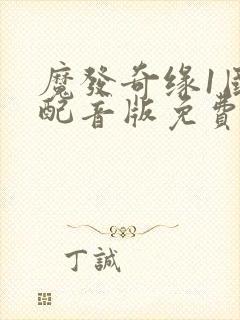 魔發奇缘1國
配音版免費
丁誠